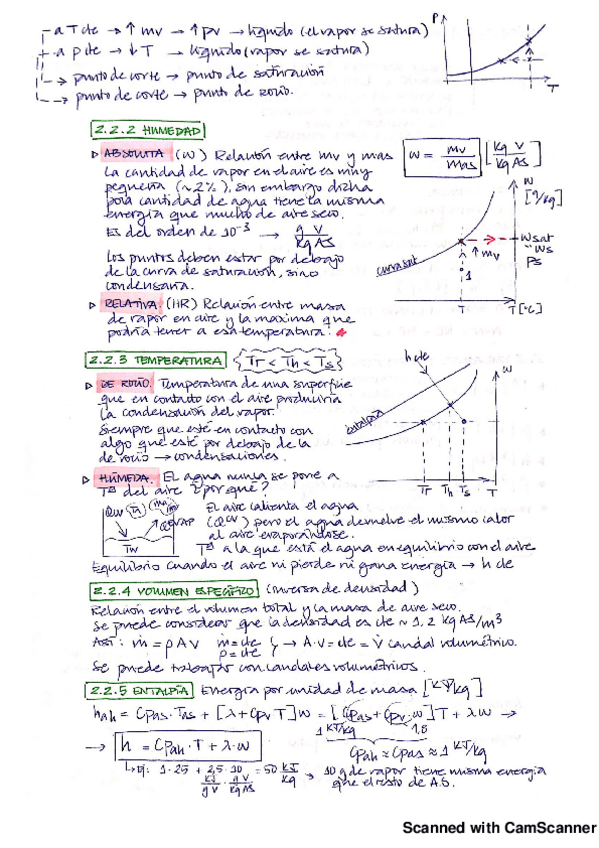 - a T cte → ↑ mv → ↑ pv → líquido (el vapor se satura)
- a p cte → ↓ T → líquido (vapor se satura)
--> punto de corte → punto de saturación
--> punto de corte → punto de rocío.
P
T
2.2.2 HUMEDAD
▷ ABSOLUTA (W) Relación entre mv y mas
W = mv / mas [Kg V / Kg AS]
La cantidad de vapor en el aire es muy
pequeña (~2%), sin embargo dicha
poca cantidad de agua tiene la misma
energía que mucho de aire seco.
Es del orden de 10⁻³ → g V / Kg AS
Los puntos deben estar por debajo
de la curva de saturación, sino
condensaría.
W [g/kg]
Wsat
Ws
Ps
↑ mv
1
curva sat
T
T [ºC]
▷ RELATIVA. (HR) Relación entre masa
de vapor en aire y la máxima que
podría tener a esa temperatura.
2.2.3 TEMPERATURA
Tr < Th < Ts
▷ DE ROCÍO. Temperatura de una superficie
que en contacto con el aire produciría
la condensación del vapor.
Siempre que esté en contacto con
algo que esté por debajo de la
de rocío → condensaciones.
h cte
W
entalpía
Tr Th Ts T
▷ HÚMEDA. El agua nunca se pone a
Tª del aire ¿por qué?
El aire calienta el agua
(Qcv) pero el agua devuelve el mismo calor
al aire evaporándose.
Tª a la que está el agua en equilibrio con el aire
Qcv
Ta
QEVAP
Tw
Equilibrio cuando el aire ni pierde ni gana energía → h cte
2.2.4 VOLUMEN ESPECÍFICO (inversa de densidad)
Relación entre el volumen total y la masa de aire seco.
Se puede considerar que la densidad es cte ~ 1,2 kg AS/m³
Así: ṁ = ρ A v ṁ = cte ρ = cte } → A·v = cte = V̇ caudal volumétrico.
Se puede trabajar con caudales volumétricos.
2.2.5 ENTALPÍA Energía por unidad de masa [KJ/kg]
hah = Cpas · Tas + [λ + Cpv T] W = [Cpas + Cpv · W] T + λ·W →
1 KJ/kg 1,8
→ h = Cpah · T + λ·W
Cpah ≈ Cpas ≈ 1 KJ/kg
↳ Ej: 1·25 + 2,5·10 = 50 KJ/Kg
KJ/g V · g V/Kg AS
→ 10 g de vapor tiene misma energía
que el resto de A.S.
Scanned with CamScanner